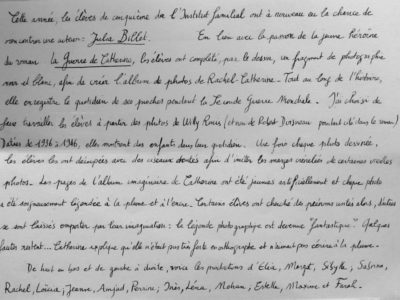 Cette année, les élèves de cinquième de l'Institut familial ont à nouveau eu la chance de
rencontrer une auteure : Julia Billet. En lien avec la passion de la jeune héroïne
du roman La Guerre de Catherine, les élèves ont complété, par le dessin, un fragment de photographie
noir et blanc, afin de créer l'album de photos de Rachel-Catherine. Tout au long de l'histoire,
elle enregistre le quotidien de ses proches pendant la Seconde Guerre Mondiale. J'ai choisi de
faire travailler les élèves à partir des photos de Willy Ronis (et non de Robert Doisneau pourtant cité dans le roman)
Datées de 1936 à 1946, elles montrent des enfants dans leur quotidien. Une fois chaque photo dessinée,
les élèves les ont découpées avec des ciseaux dentés afin d'imiter les marges crénelées de certaines vieilles
photos. Les pages de l'album imaginaire de Catherine ont été jaunies artificiellement et chaque photo
a été soigneusement légendée à la plume et à l'encre. Certains élèves ont cherché des prénoms usités alors, d'autres
se sont laissés emporter par leur imagination : la légende photographique est devenue "fantastique". Quelques
fautes restent... Catherine explique qu'elle n'était pas très forte en orthographe et n'aimait pas écrire à la plume.
De haut en bas et de gauche à droite, voici les productions d'Elia, Margot, Sibylle, Sabrina,
Rachel, Loïcia, Jeanne, Amjad, Perrine, Inès, Léna, Meham, Estelle, Maxime et Farah.